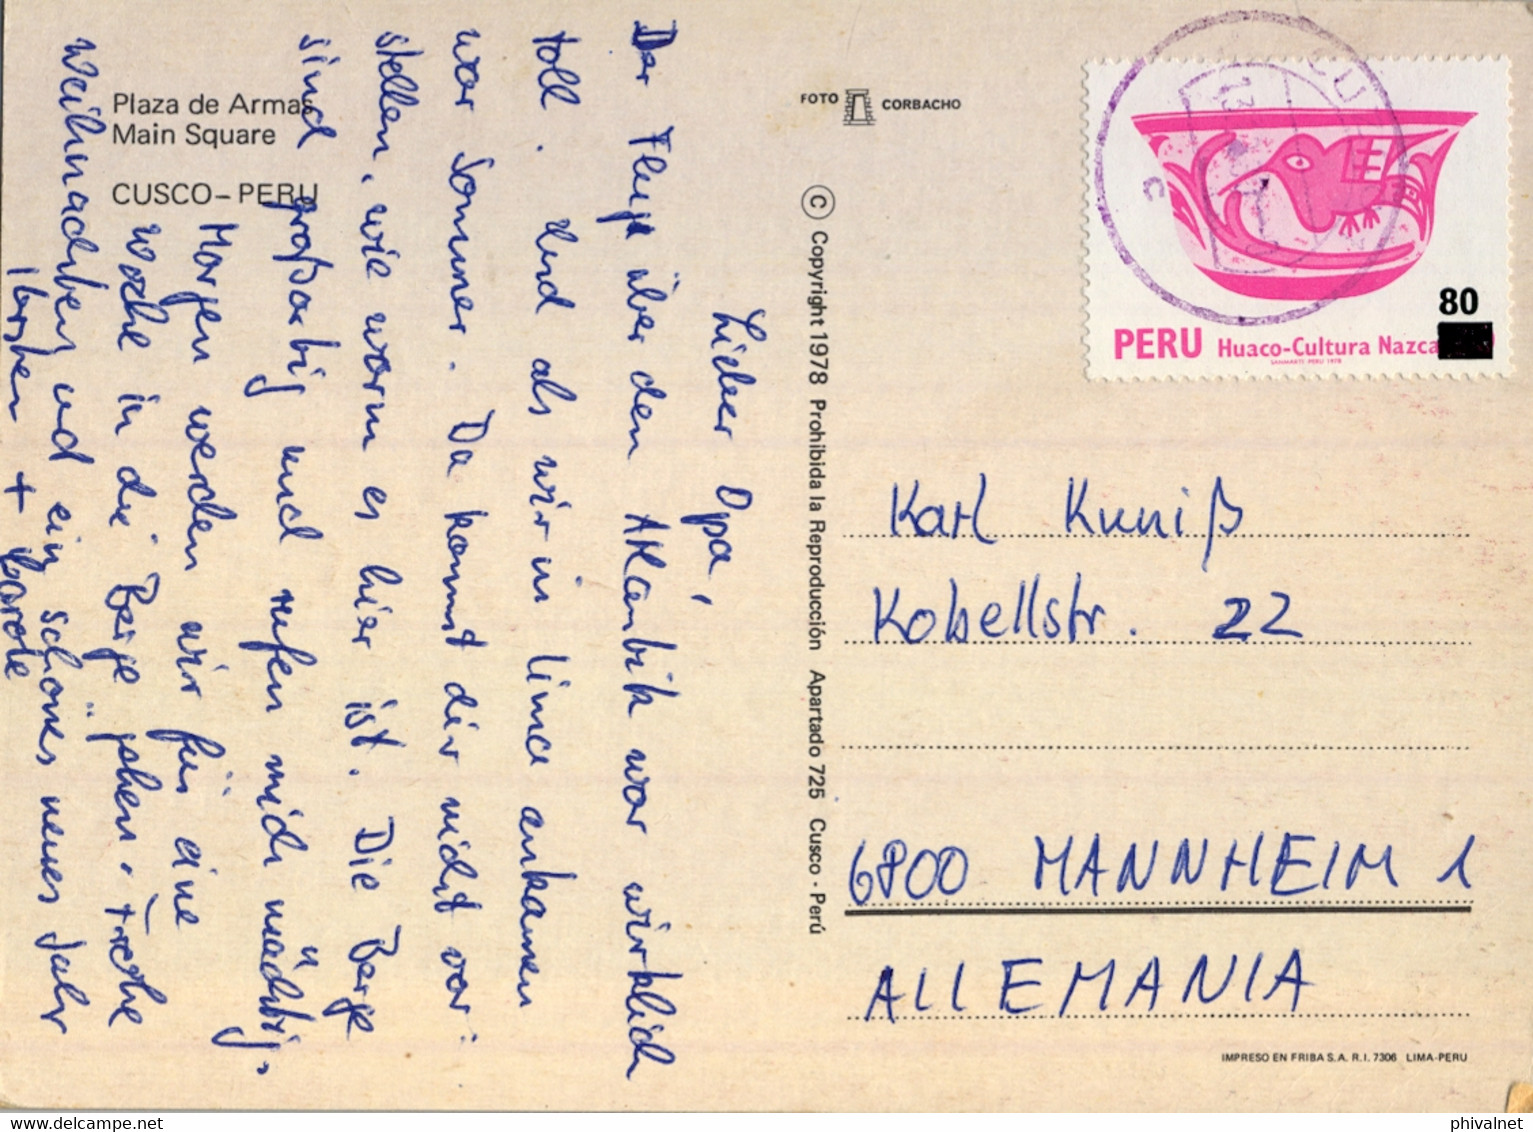 Plaza de Armas
Main Square
CUSCO-PERU
Lieber Opa,
Der Flug über den Atlantik war wirklich
toll. Und als wir in Lima ankamen
war Sommer. Da kannst dir nicht vor-
stellen, wie warm es hier ist. Die Berge
sind großartig und rufen mich mächtig.
Morgen werden wir für eine
Woche in die Berge gehen. Frohe
Weihnachten und ein schönes neues Jahr
Torsten + Carole
FOTO CORBACHO
© Copyright 1978 Prohibida la Reproducción Apartado 725 Cusco - Perú
CUZCO
80
PERU Huaco-Cultura Nazca
SANMARTI PERU 1978
Karl Kuniß
Kobellstr. 22
6800 MANNHEIM 1
ALLEMANIA
IMPRESO EN FRIBA S.A. R.I. 7306 LIMA-PERU
phivalnet